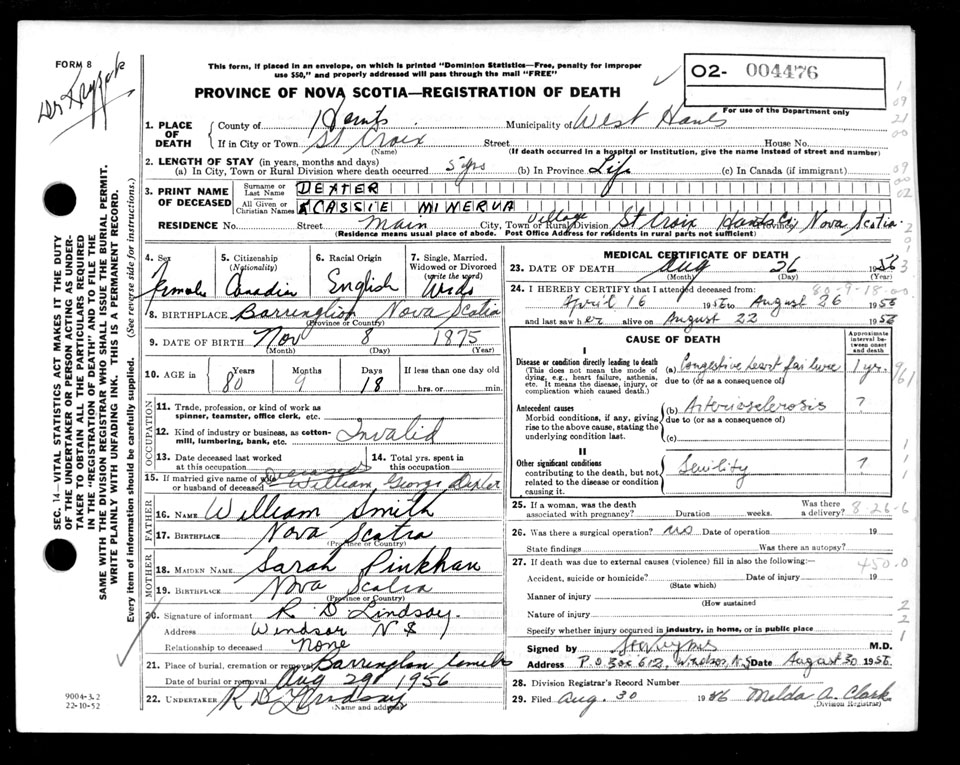 FORM 8
This form, if placed in an envelope, on which is printed "Dominion Statistics—Free, penalty for improper
use $50," and properly addressed will pass through the mail "FREE"
O2- 004476
For use of the Department only
PROVINCE OF NOVA SCOTIA—REGISTRATION OF DEATH
1. PLACE OF DEATH
County of Hants Municipality of West Hants
If in City or Town St Croix Street House No.
(Name) (If death occurred in a hospital or institution, give the name instead of street and number)
2. LENGTH OF STAY (in years, months and days)
(a) In City, Town or Rural Division where death occurred 5 yrs (b) In Province Life (c) In Canada (if immigrant)
3. PRINT NAME OF DECEASED
Surname or Last Name DEXTER
All Given or Christian Names CASSIE MINERVA
RESIDENCE No. Street Main City, Town or Rural Division Village St Croix Hants Co Province Nova Scotia
(Residence means usual place of abode. Post Office Address for residents in rural parts not sufficient)
4. Sex Female
5. Citizenship (Nationality) Canadian
6. Racial Origin English
7. Single, Married, Widowed or Divorced (write the word) Wido
8. BIRTHPLACE Barrington Nova Scotia
(Province or Country)
9. DATE OF BIRTH Nov 8 1875
(Month) (Day) (Year)
10. AGE in Years 80 Months 9 Days 18 If less than one day old hrs. or min.
OCCUPATION
11. Trade, profession, or kind of work as
spinner, teamster, office clerk, etc.
12. Kind of industry or business, as cotton-
mill, lumbering, bank, etc. Invalid
13. Date deceased last worked
at this occupation
14. Total yrs. spent in
this occupation
15. If married give name of wife
or husband of deceased Deceased William George Dexter
FATHER
16. NAME William Smith
17. BIRTHPLACE Nova Scotia
(Province or Country)
MOTHER
18. MAIDEN NAME Sarah Pinkham
19. BIRTHPLACE Nova Scotia
(Province or Country)
20. Signature of informant R D Lindsay.
Address Windsor N S
Relationship to deceased None
21. Place of burial, cremation or removal Barrington
Date of burial or removal Aug 29 1956
22. UNDERTAKER R D Lindsay
(Name and address)
MEDICAL CERTIFICATE OF DEATH
23. DATE OF DEATH Aug 26 1956
(Month) (Day) (Year)
24. I HEREBY CERTIFY that I attended deceased from: 80-9-18-00
April 16 1956 to August 26 1956
and last saw her alive on August 22 1956
CAUSE OF DEATH
Approximate interval between onset and death
I
Disease or condition directly leading to death
(This does not mean the mode of
dying, e.g., heart failure, asthenia,
etc. It means the disease, injury, or
complication which caused death.)
(a) Congestive heart failure 1 yr.
due to (or as a consequence of)
Antecedent causes
Morbid conditions, if any, giving
rise to the above cause, stating the
underlying condition last.
(b) Arteriosclerosis ?
due to (or as a consequence of)
(c)
II
Other significant conditions
contributing to the death, but not
related to the disease or condition
causing it.
Senility ?
25. If a woman, was the death
associated with pregnancy? Duration weeks. Was there a delivery? 8-26-6
26. Was there a surgical operation? no Date of operation 19
State findings Was there an autopsy?
27. If death was due to external causes (violence) fill in also the following:— 450.0
Accident, suicide or homicide? Date of injury 19
(State which)
Manner of injury
(How sustained
Nature of injury
Specify whether injury occurred in industry, in home, or in public place
Signed by M.D.
Address P.O. Box 612, Windsor, N.S. Date August 30 1956.
28. Division Registrar's Record Number
29. Filed Aug. 30 1956 Melda A. Clark
(Division Registrar)
SEC. 14—VITAL STATISTICS ACT MAKES IT THE DUTY
OF THE UNDERTAKER OR PERSON ACTING AS UNDER-
TAKER TO OBTAIN ALL THE PARTICULARS REQUIRED
IN THE "REGISTRATION OF DEATH" AND TO FILE THE
SAME WITH THE DIVISION REGISTRAR WHO SHALL ISSUE THE BURIAL PERMIT.
WRITE PLAINLY WITH UNFADING INK. THIS IS A PERMANENT RECORD.
Every item of information should be carefully supplied. (See reverse side for instructions.)
9004-3.2
22-10-52